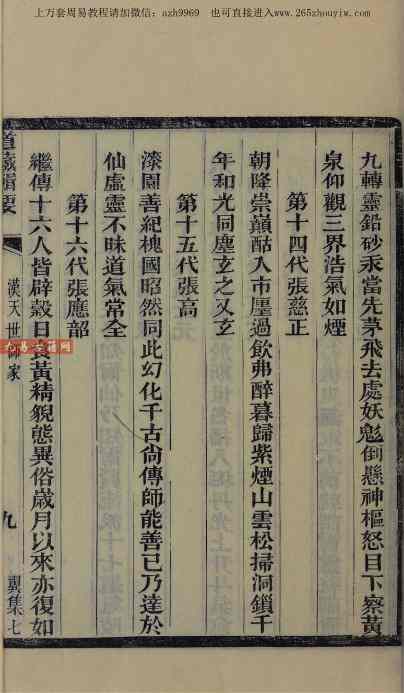 上万套周易教程请加微信：azh9969 也可直接进入www.265zhouyiw.com
九轉靈鉛砂汞當先茅飛去處妖魁倒懸神樞怒目下察黃
泉仰觀三界浩氣如煙
第十四代張慈正
朝隆崇巔酤入市廛過飲弗醉暮歸紫煙山雲松掃洞鎖千
年和光同塵玄之又玄
第十五代張高
漆園善紀槐國昭然同此幻化千古尚傳師能善已乃達於
仙虛靈不昧道氣常全
第十六代張應韶
繼傳十六人皆辟穀日黃精貌態異俗歲月以來亦復如
道藏輯要
漢天世師家
九
翼集七